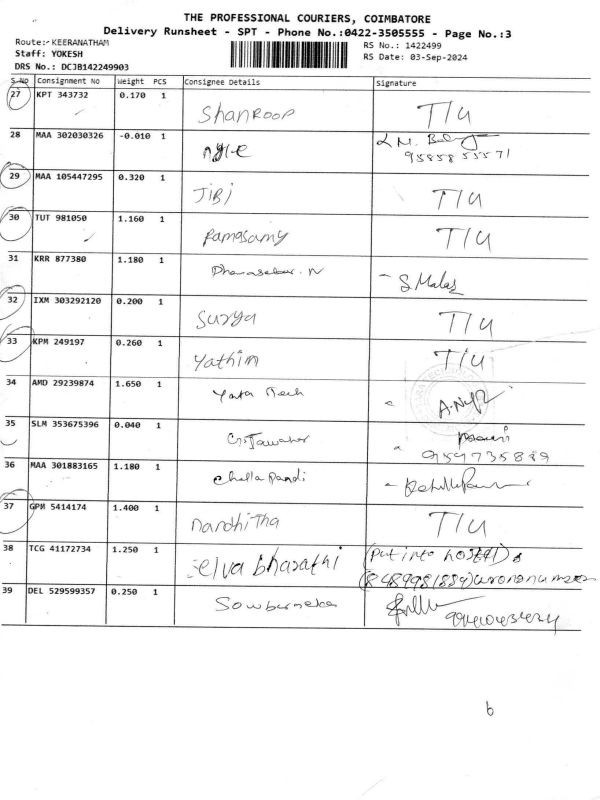 THE PROFESSIONAL COURIERS, COIMBATORE
Delivery Runsheet - SPT - Phone No.:0422-3505555 - Page No.:3
Route:- KEERANATHAM
RS No.: 1422499
Staff: YOKESH
RS Date: 03-Sep-2024
DRS No.: DCJB142249903
S.No Consignment No Weight PCS Consignee Details Signature
27 KPT 343732 0.170 1 Shanroop T/U
28 MAA 302030326 -0.010 1
29 MAA 105447295 0.320 1 JIBI T/U
30 TUT 981050 1.160 1 Ramasamy T/U
31 KRR 877380 1.180 1 Dhanasekar. N S. Malar
32 IXM 303292120 0.200 1 Surya T/U
33 KPM 249197 0.260 1 Yathin T/U
34 AMD 29239874 1.650 1 Tech
35 SLM 353675396 0.040 1
36 MAA 301883165 1.180 1 Chella Pandi
37 GPM 5414174 1.400 1 Nandhitha T/U
38 TCG 41172734 1.250 1 elva bharathi (Put into hostel)
39 DEL 529599357 0.250 1
6